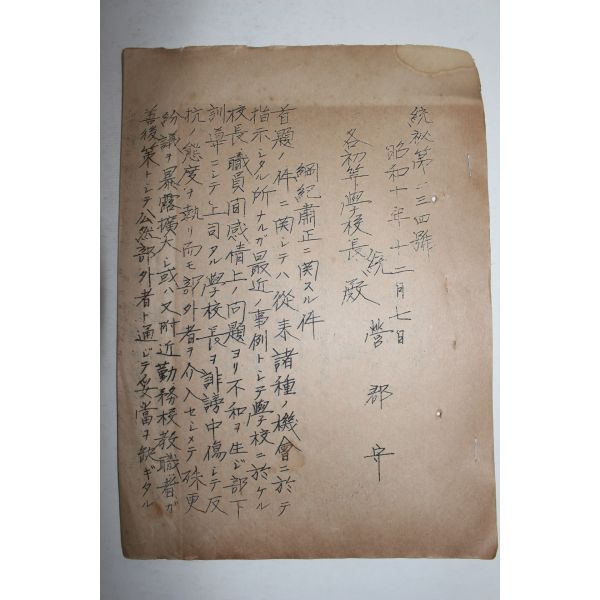 統祕第一三四號
昭和十年十二月七日
統營郡守
各初等學校長殿
綱紀肅正ニ関スル件
首題ノ件ニ関シテハ從来諸種ノ機會ニ於テ
指示シタル所ナルガ最近ノ事例トシテ學校ニ於ケル
校長職員間感情上ノ問題ヨリ不和ヲ生ジ部下
訓導ニシテ上司タル學校長ヲ誹謗中傷シテ反
抗ノ態度ヲ執リ而モ部外者ヲ介入セシメテ殊更
紛議ヲ暴露擴大シ或ハ又附近勤務校教職者ガ
善後策トシテ公然部外者ト通ジテ妥當ヲ缺ギタル